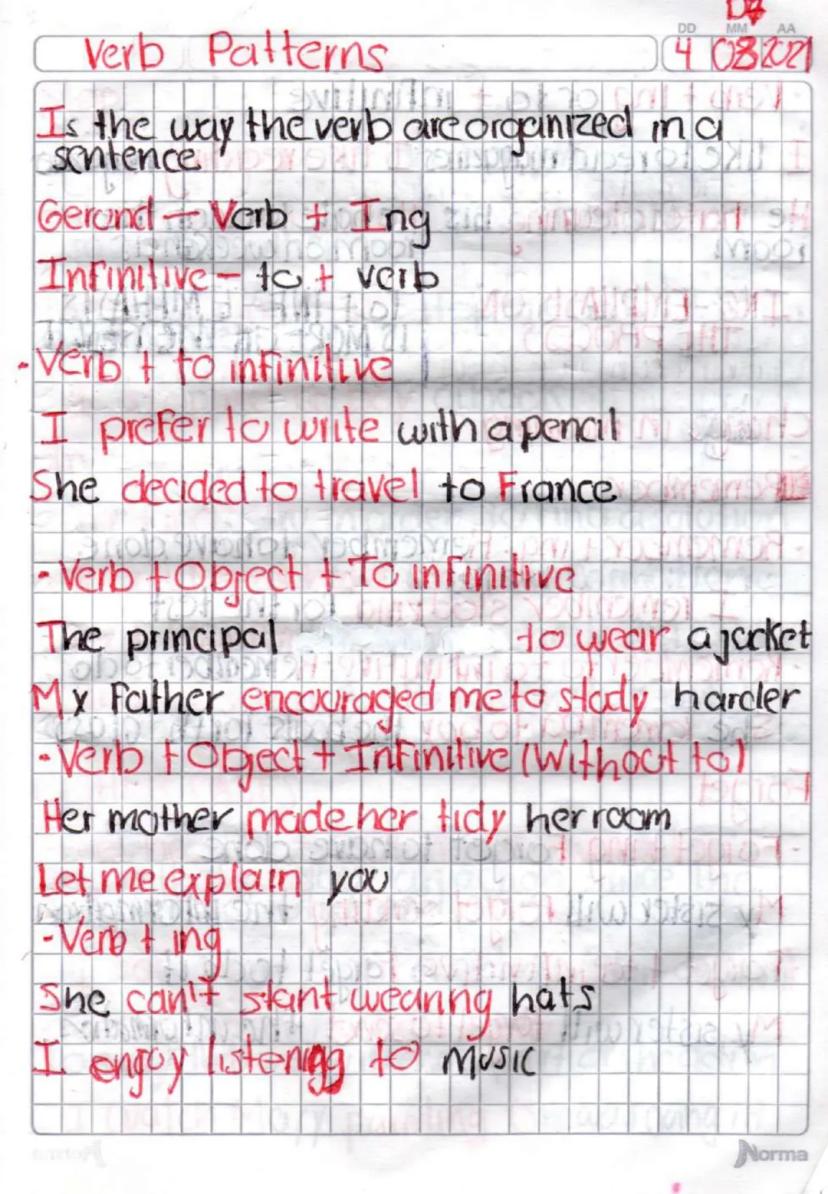 D7
DD MM AA
Verb Patterns 4 08 2021
Is the way the verb are organized in a
sentence
Gerond – Verb + Ing
Infinitive – to + verb
- Verb + to infinitive
I prefer to write with a pencil
She decided to travel to France
- Verb + Object + To infinitive
The principal to wear a jacket
My Father encouraged me to study harder
- Verb + Object + Infinitive (Without to)
Her mother made her tidy her room
Let me explain you
- Verb + ing
She can't stant wearing hats
I enjoy listening to music
Norma